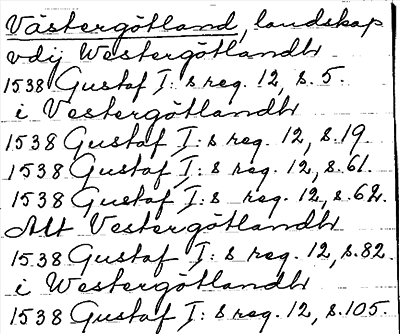 Västergötland, landskap
vdij Westergötlandh
1538 Gustaf I:s reg. 12, s. 5.
i Vestergötlandh
1538 Gustaf I:s reg. 12, s. 19
1538 Gustaf I:s reg. 12, s. 61.
1538 Gustaf I:s reg. 12, s. 62.
Alt Vestergötlandh
1538 Gustaf I:s reg. 12, s. 82.
i Westergötlandh
1538 Gustaf I:s reg. 12, s. 105.